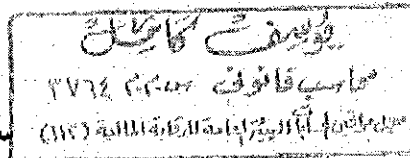 يوسف كامل
محاسب قانوني س.م.م ٣٧٦٤
سجل مراقبي الحسابات الهيئة العامة للرقابة المالية (١١٢)